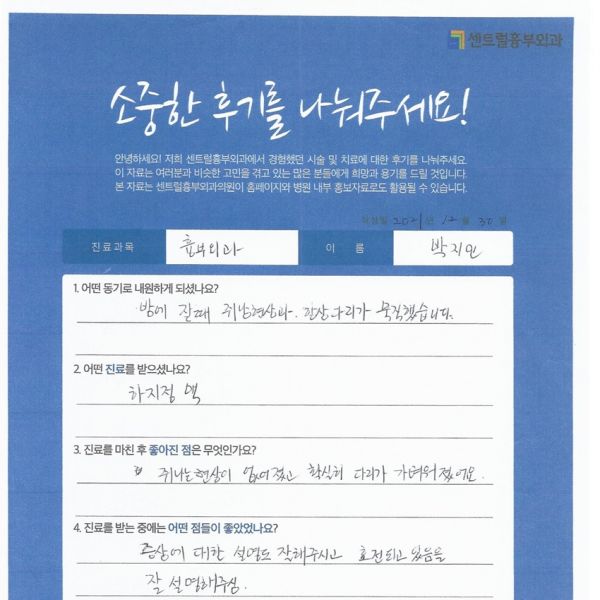 센트럴흉부외과
소중한 후기를 나눠주세요!
안녕하세요! 저희 센트럴흉부외과에서 경험했던 시술 및 치료에 대한 후기를 나눠주세요
이 자료는 여러분과 비슷한 고민을 겪고 있는 많은 분들에게 희망과 용기를 드릴 것입니다.
본 자료는 센트럴흉부외과의원이 홈페이지와 병원 내부 홍보자료로도 활용될 수 있습니다.
작성일 2021년 12월 30일
진료과목 흉부외과 이 름 박지민
1. 어떤 동기로 내원하게 되셨나요?
밤에 잘때 쥐남현상과. 항상 다리가 묵직했습니다.
2. 어떤 진료를 받으셨나요?
하지정맥
3. 진료를 마친 후 좋아진 점은 무엇인가요?
쥐나는현상이 없어졌고 확실히 다리가 가벼워졌어요.
4. 진료를 받는 중에는 어떤 점들이 좋았었나요?
증상에 대한 설명도 잘해주시고 호전되고 있음을
잘 설명해주심.